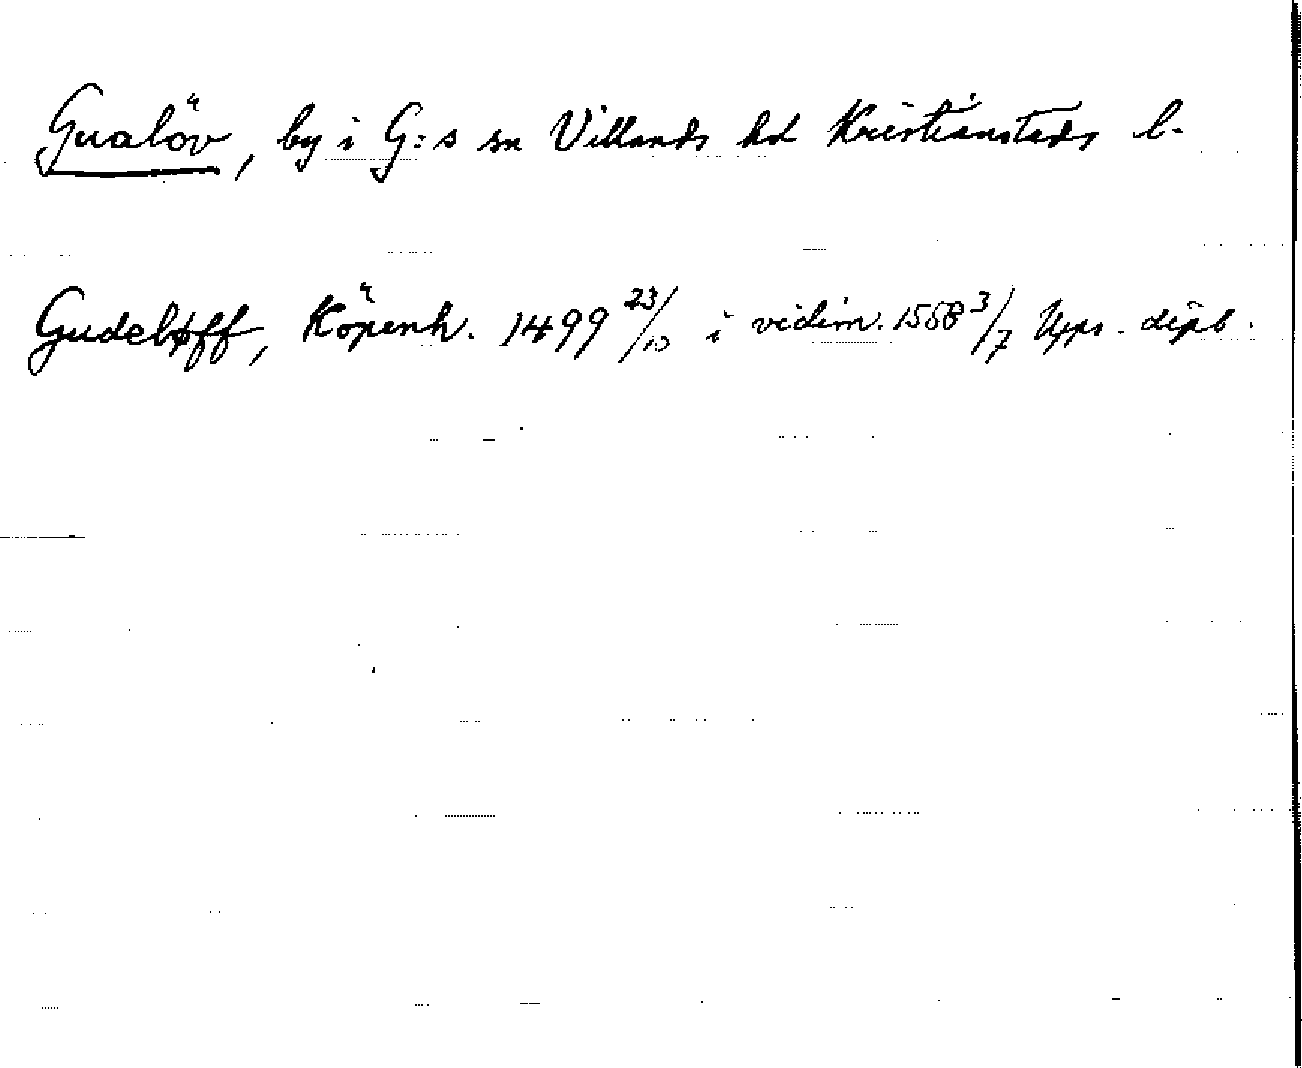 Gualöv, by i G:s sn Villands hd Kristianstads l.
Gudeløff, Köpenh. 1499 23/10 i vidim. 1558 3/7 Upps. dipl.